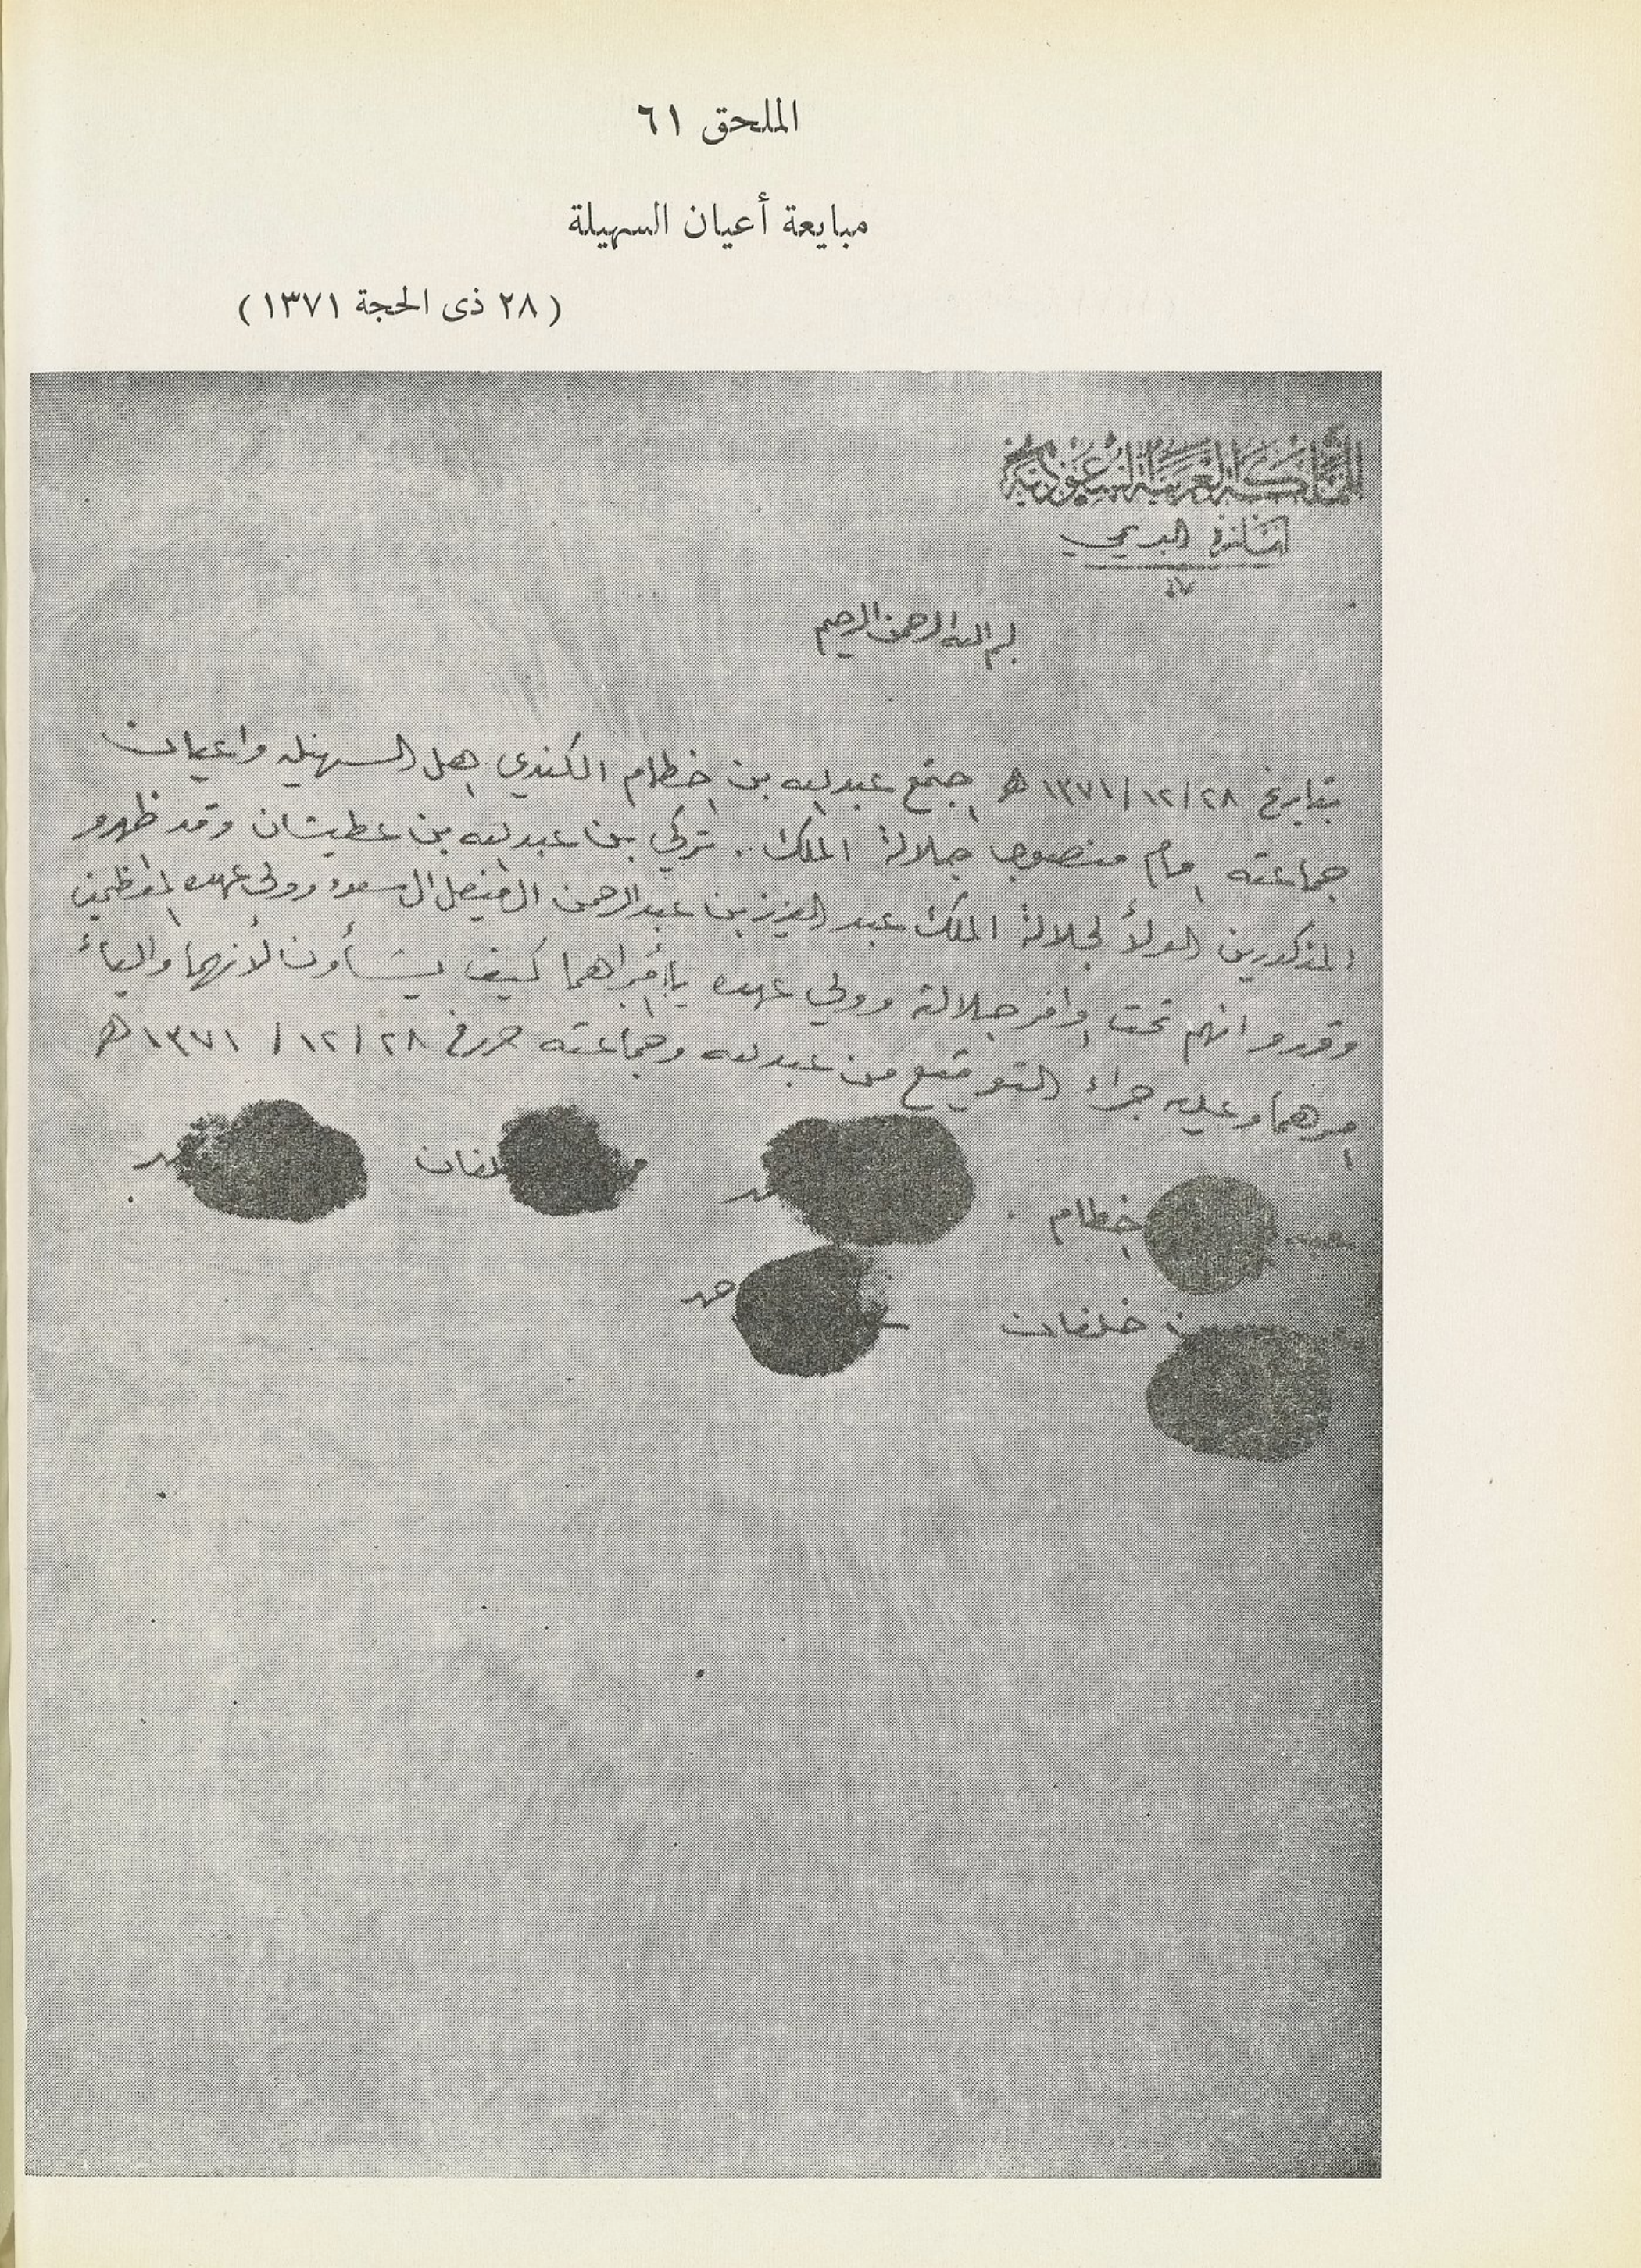 الملحق ٦١
مبايعة أعيان السهيلة
(٢٨ ذى الحجة ١٣٧١)
المملكة العربية السعودية
امارة البريمي
بسم الله الرحمن الرحيم
بتاريخ ٢٨/١٢/١٣٧١ هـ اجتمع عبدالله بن خطام الكندي اهل السهيله واعيان
جماعته امام منصوب جلالة الملك .. تركي بن عبدالله بن عطيشان وقد ظهرو
المذكورين الولأ لجلالة الملك عبد العزيز بن عبدالرحمن الفيصل ال سعود وولي عهده المعظمين
وقررو انهم تحت اوامر جلالة وولي عهده يأمراهما كيف يشأون لأنهما
امرهما وعليه جراء التوقيع من عبدالله وجماعته حرر في ٢٨/١٢/١٣٧١ هـ
خطام
خلفان